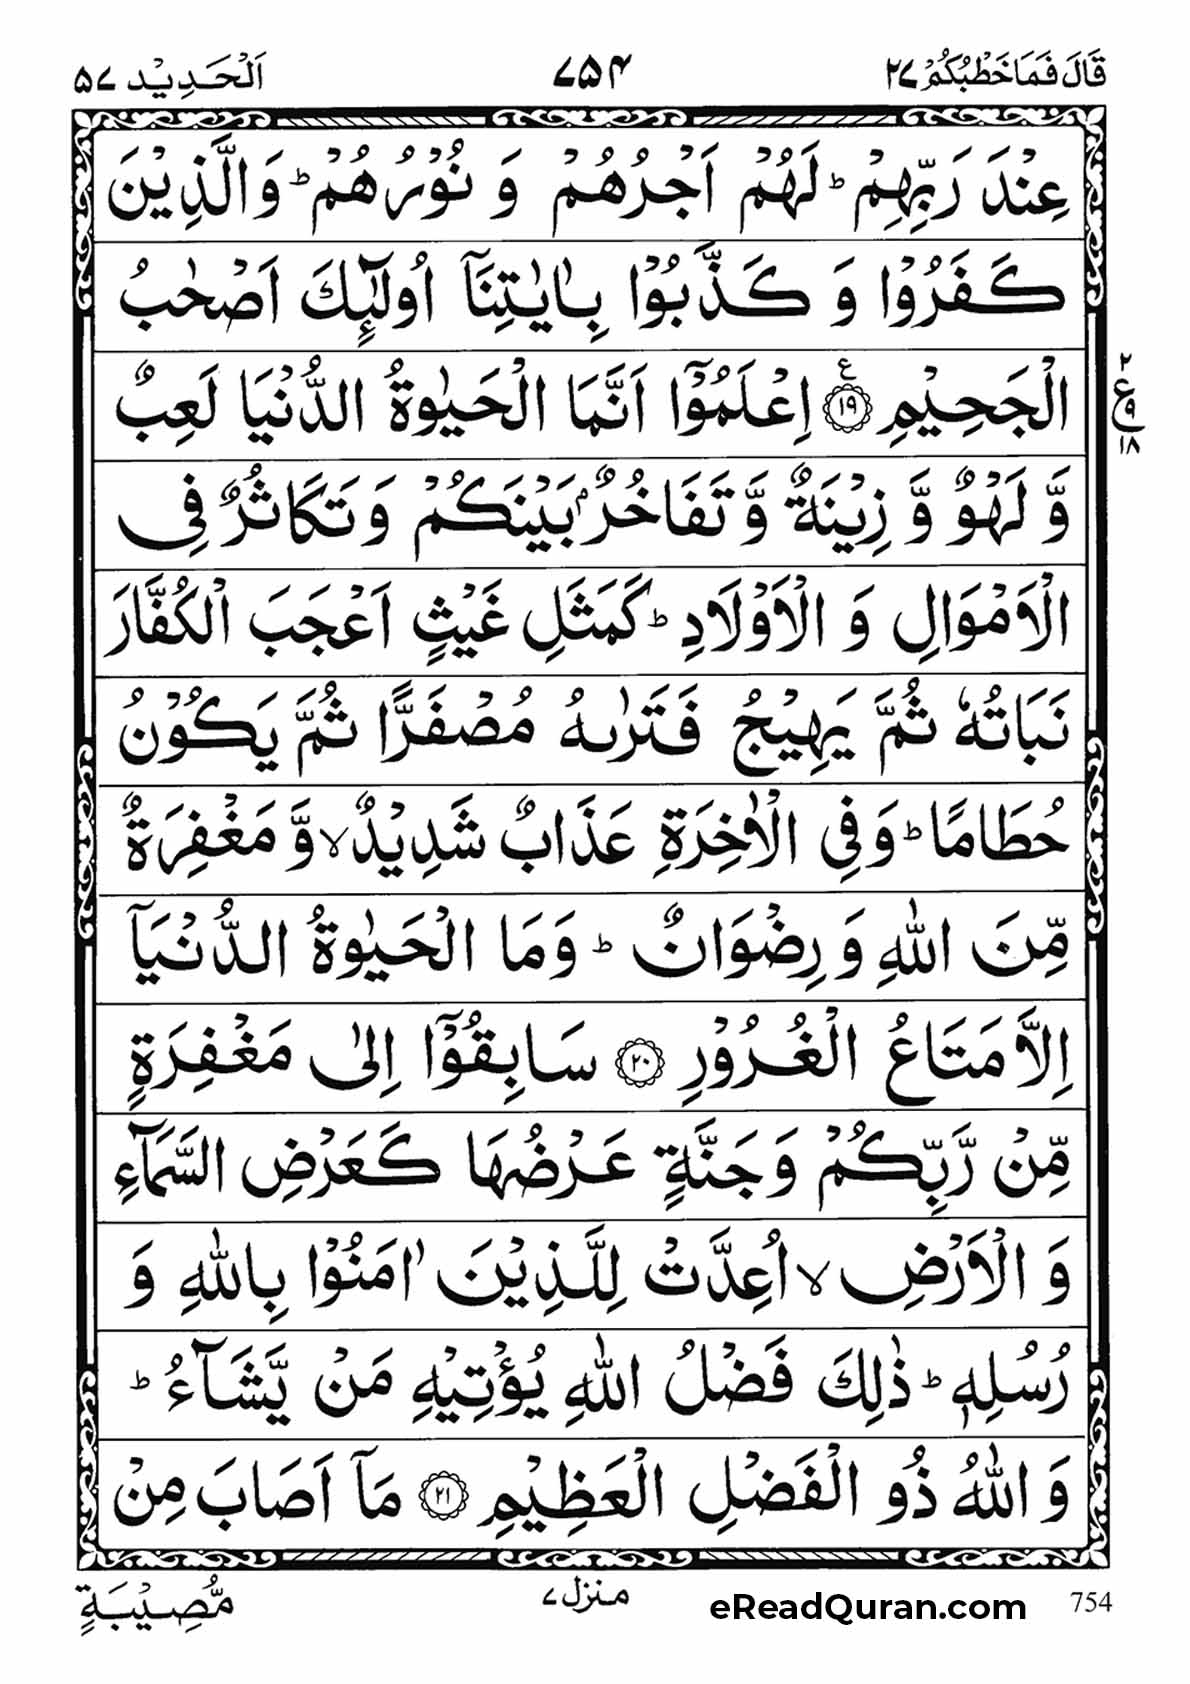 قَالَ فَمَا خَطْبُكُمْ ۲۷ ۷۵۴ اَلْحَدِیْد ۵۷
عِنْدَ رَبِّهِمْ ؕ لَهُمْ اَجْرُهُمْ وَ نُوْرُهُمْ ؕ وَالَّذِیْنَ
كَفَرُوْا وَ كَذَّبُوْا بِاٰیٰتِنَاۤ اُولٰٓىِٕكَ اَصْحٰبُ
الْجَحِیْمِ ۱۹ ع اِعْلَمُوْۤا اَنَّمَا الْحَیٰوةُ الدُّنْیَا لَعِبٌ
۲ ع ۹ ۱۸
وَّ لَهْوٌ وَّ زِیْنَةٌ وَّ تَفَاخُرٌۢ بَیْنَكُمْ وَ تَكَاثُرٌ فِی
الْاَمْوَالِ وَ الْاَوْلَادِ ؕ كَمَثَلِ غَیْثٍ اَعْجَبَ الْكُفَّارَ
نَبَاتُهٗ ثُمَّ یَهِیْجُ فَتَرٰىهُ مُصْفَرًّا ثُمَّ یَكُوْنُ
حُطَامًا ؕ وَ فِی الْاٰخِرَةِ عَذَابٌ شَدِیْدٌ ۙ وَّ مَغْفِرَةٌ
مِّنَ اللّٰهِ وَ رِضْوَانٌ ؕ وَ مَا الْحَیٰوةُ الدُّنْیَاۤ
اِلَّا مَتَاعُ الْغُرُوْرِ ۲۰ سَابِقُوْۤا اِلٰی مَغْفِرَةٍ
مِّنْ رَّبِّكُمْ وَ جَنَّةٍ عَرْضُهَا كَعَرْضِ السَّمَآءِ
وَ الْاَرْضِ ۙ اُعِدَّتْ لِلَّذِیْنَ اٰمَنُوْا بِاللّٰهِ وَ
رُسُلِهٖ ؕ ذٰلِكَ فَضْلُ اللّٰهِ یُؤْتِیْهِ مَنْ یَّشَآءُ ؕ
وَ اللّٰهُ ذُو الْفَضْلِ الْعَظِیْمِ ۲۱ مَاۤ اَصَابَ مِنْ
754 eReadQuran.com منزل ۷ مُّصِیْبَةٍ